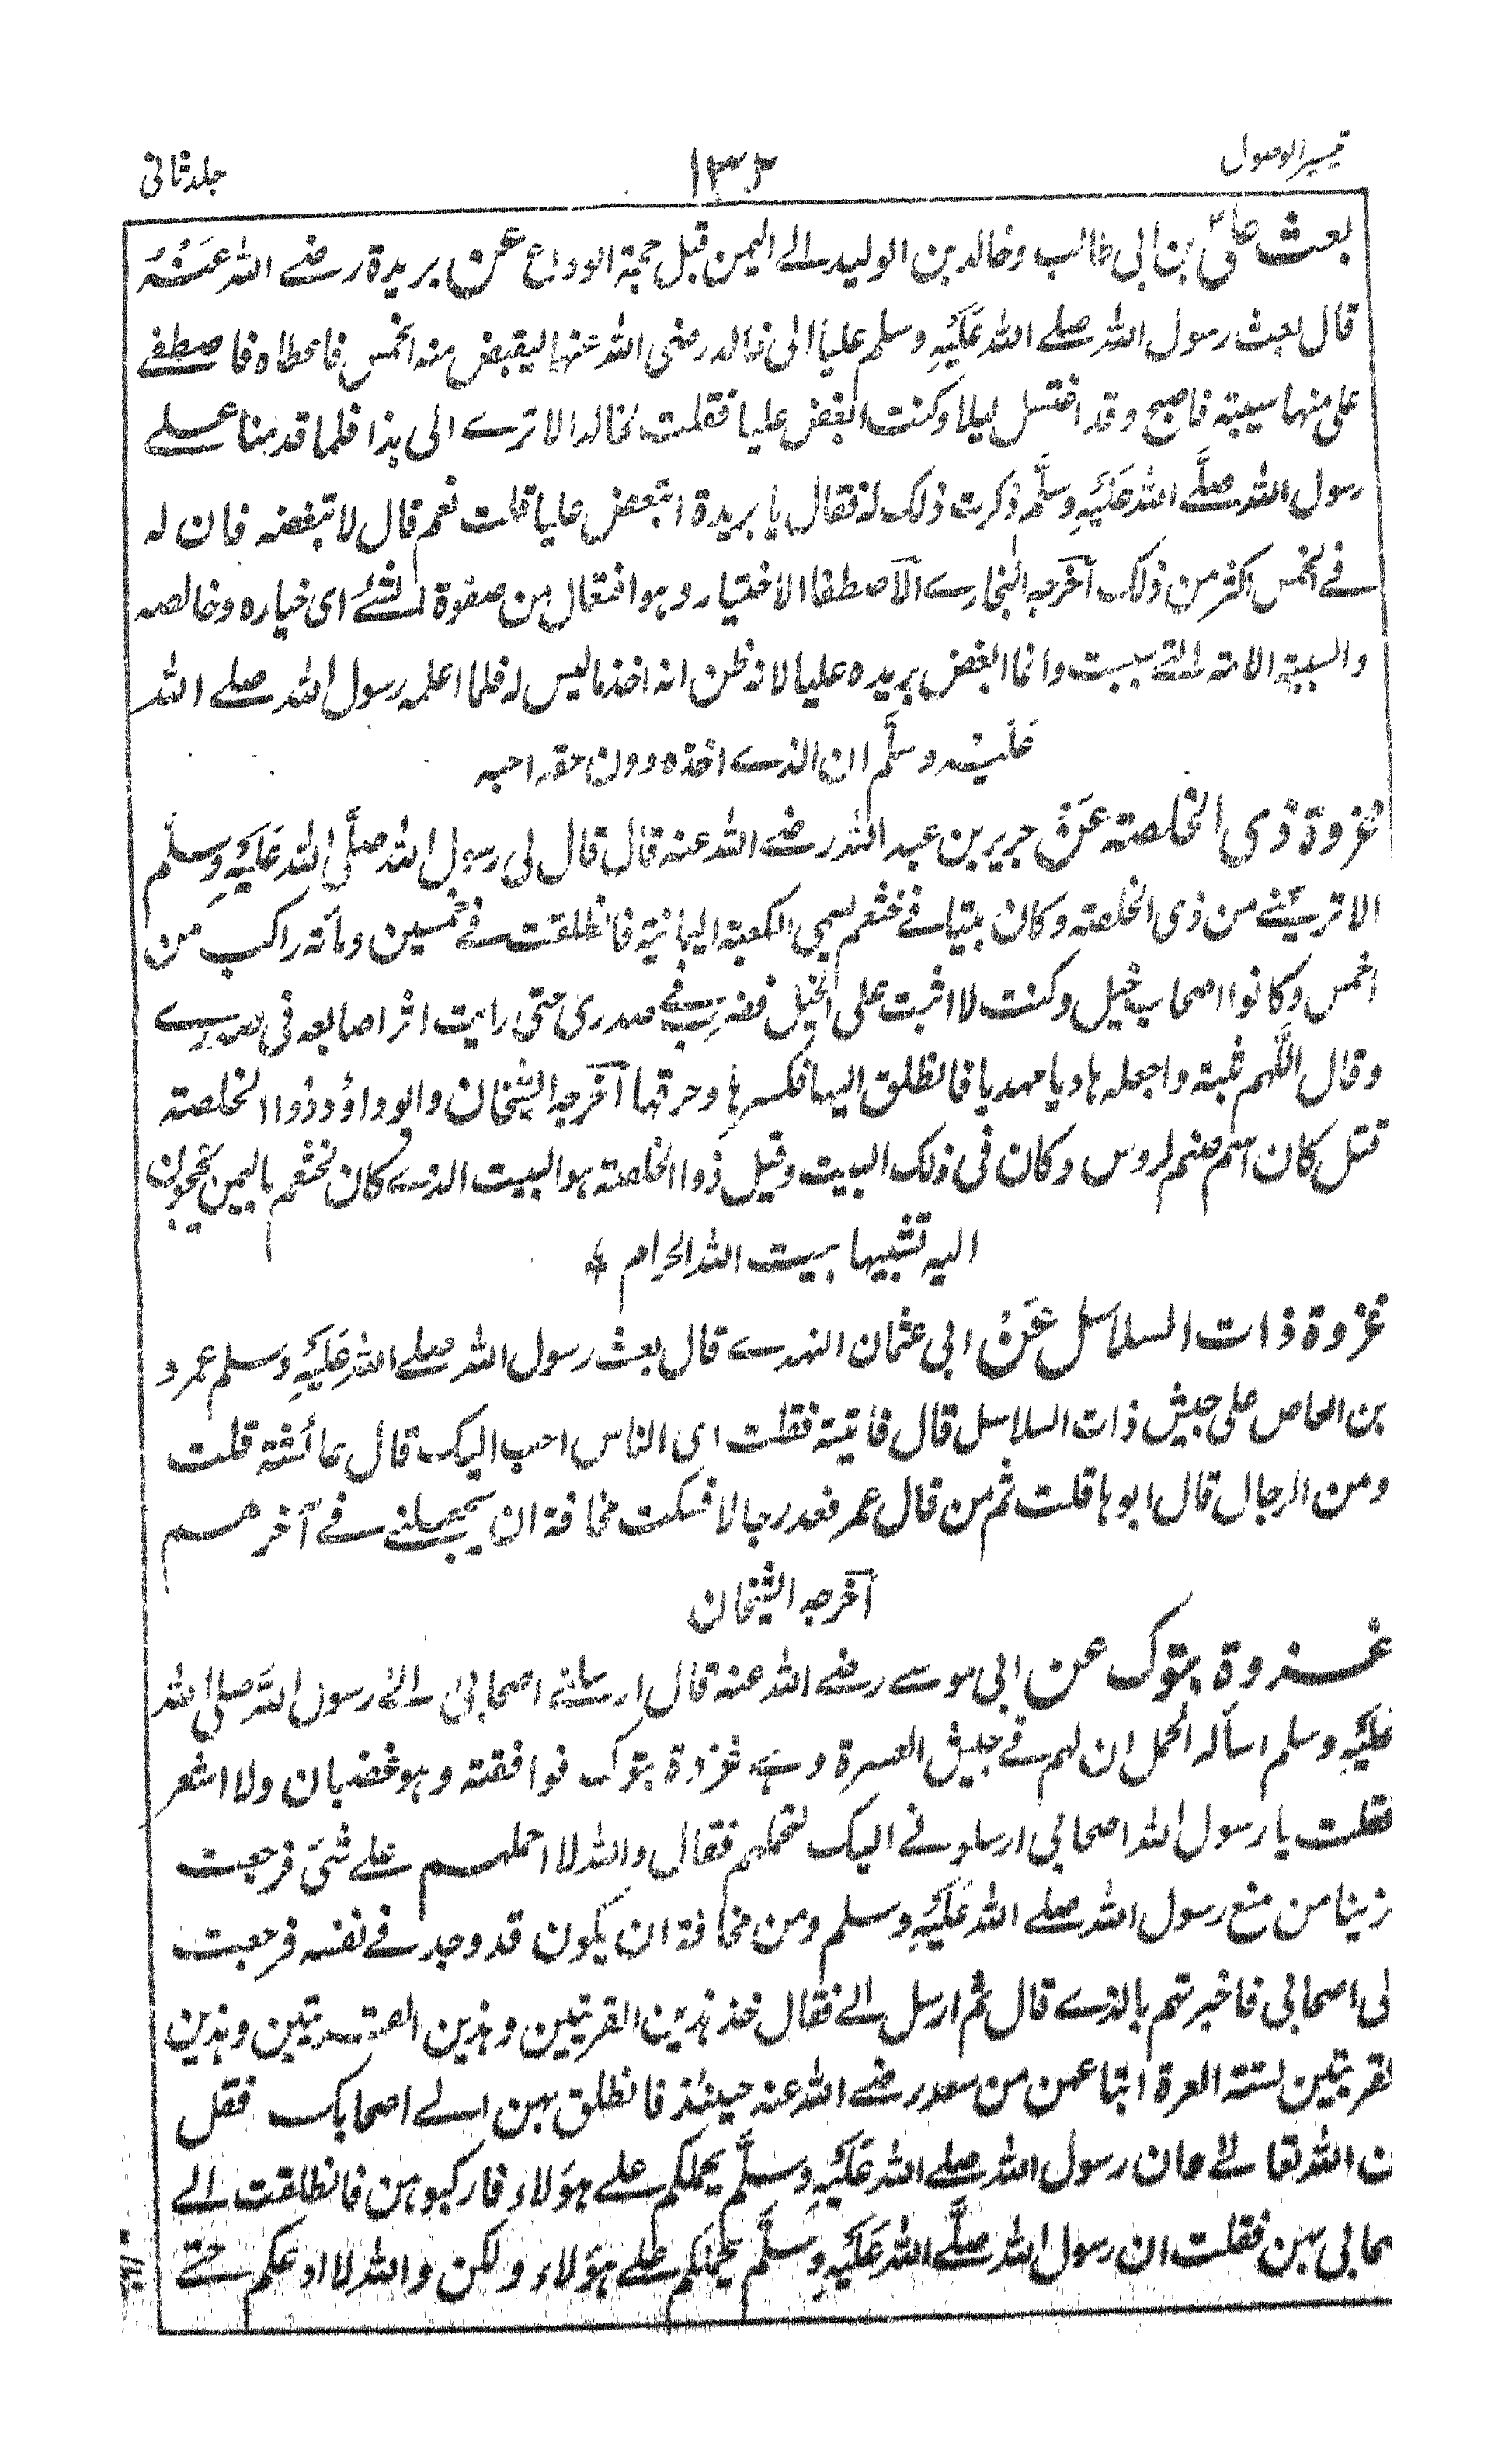 تيسير الوصول
١٣٢
جلد ثانى
بعث على بن ابى طالب وخالد بن الوليد الے اليمن قبل حجة الوداع عن بريدة رضے اللہ عنہ
قال بعث رسول اللہ صلے اللہ عليہ وسلم عليا الى خالد رضى اللہ عنہما ليقبض منہ الخمس فاعطاہ فاصطفے
على منہا سبيتہ فاصبح وقد اغتسل ليلا وكنت ابغض عليا فقلت لخالد الا ترے الى ہذا فلما قدمنا علے
رسول اللہ صلے اللہ عليہ وسلم ذكرت ذلك لہ فقال يا بريدة اتبغض عليا قلت نعم قال لا تبغضہ فان لہ
فے الخمس اكثر من ذلك اخرجہ البخارے الاصطفا الاختيار وہو افتعال من صفوة الشئ اى خيارہ وخالصہ
والسبية الامة التے سبيت وانما ابغض بريدہ عليا لانہ ظن انہ اخذ ما ليس لہ فلما اعلمہ رسول اللہ صلے اللہ
عليہ وسلم ان الذے اخذہ دون حقہ احبہ
غزوة ذى الخلصة عن جرير بن عبد اللہ رضے اللہ عنہ قال قال لى رسول اللہ صلى اللہ عليہ وسلم
الا تريحنے من ذى الخلصة وكان بيتا فے خثعم يسمى الكعبة اليمانية فانطلقت فے خمسين ومأة راكب من
احمس وكانوا اصحاب خيل وكنت لا اثبت على الخيل فضرب فے صدرى حتى رايت اثر اصابعہ فى صدرے
وقال اللہم ثبتہ واجعلہ ہاديا مہديا فانطلق اليہا فكسرہا وحرقہا اخرجہ الشيخان وابو داؤد ذوا الخلصة
قتل كان اسم صنم لدوس وكان فى ذلك البيت وقيل ذوا الخلصة ہو البيت الذے كان لخثعم باليمن يحجون
اليہ تشبيہا ببيت اللہ الحرام
غزوة ذات السلاسل عن ابى عثمان النہدے قال بعث رسول اللہ صلے اللہ عليہ وسلم عمرو
بن العاص على جيش ذات السلاسل قال فاتيتہ فقلت اى الناس احب اليك قال عائشة قلت
ومن الرجال قال ابوہا قلت ثم من قال عمر فعد رجالا فسكت مخافة ان يجعلنے فے آخرہم
اخرجہ الشيخان
غزوة تبوك عن ابى موسے رضے اللہ عنہ قال ارسلنے اصحابى الے رسول اللہ صلى اللہ
عليہ وسلم اسألہ الحملان لہم فے جيش العسرة وہے غزوة تبوك فوافقتہ وہو غضبان ولا اشعر
فقلت يا رسول اللہ اصحابى ارسلونے اليك لتحملہم فقال واللہ لا احملہم علے شئ فرجعت
زينا من منع رسول اللہ صلے اللہ عليہ وسلم ومن مخافة ان يكون قد وجد فے نفسہ فرجعت
لى اصحابى فاخبرتہم بالذے قال ثم ارسل الے فقال خذ ہذين القرينين وہذين القرينين وہذين
لقرينين لستة ابعرة ابتاعہن من سعد رضے اللہ عنہ حينئذ فانطلق بہن الے اصحابك فقل
ن اللہ تعالے وان رسول اللہ صلے اللہ عليہ وسلم يحملكم علے ہؤلاء فاركبوہن فانطلقت الے
صحابى بہن فقلت ان رسول اللہ صلے اللہ عليہ وسلم يحملكم علے ہؤلاء ولكن واللہ لا ادعكم حتے